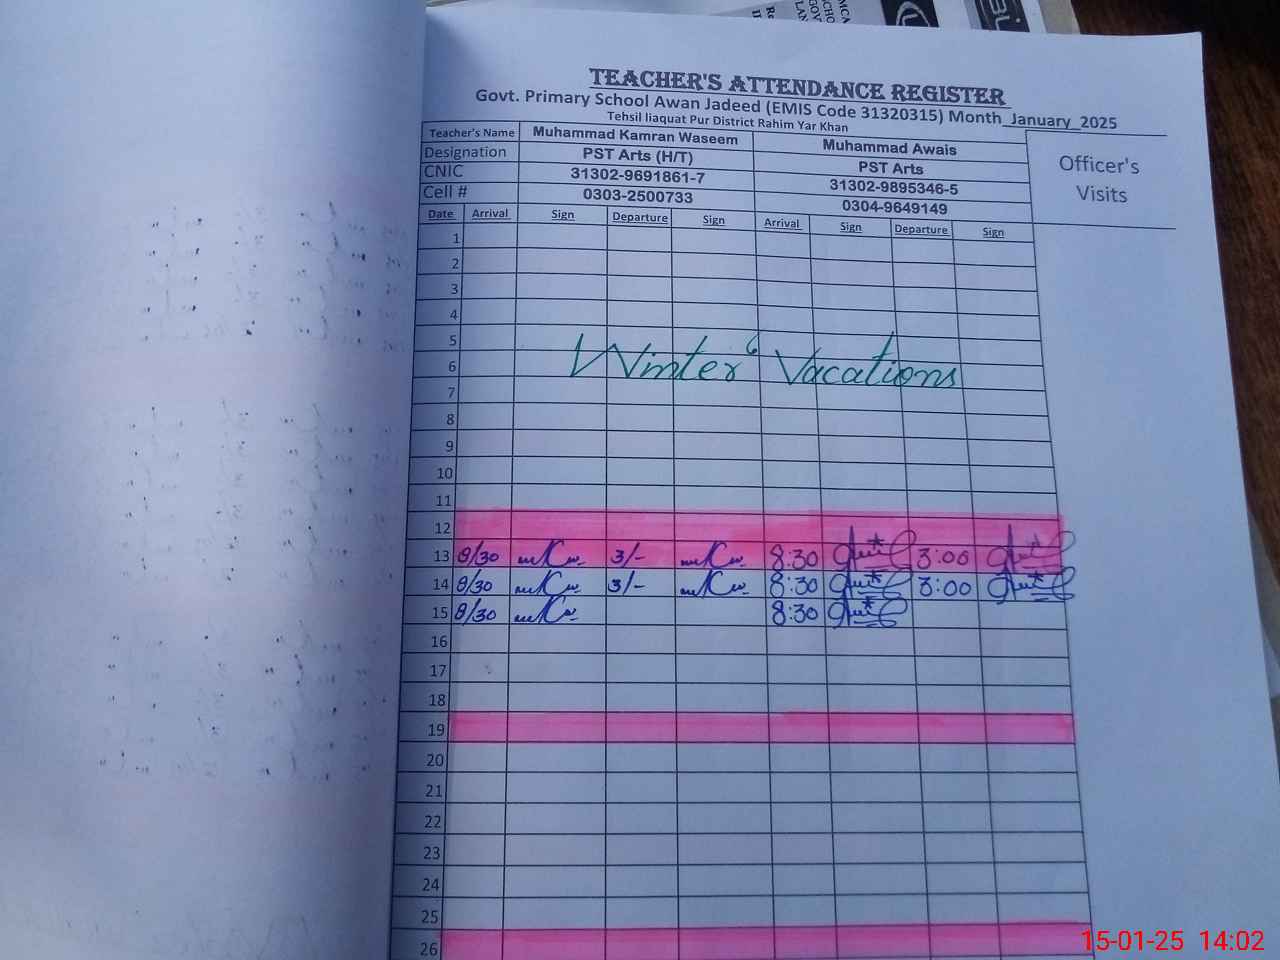 TEACHER'S ATTENDANCE REGISTER
Govt. Primary School Awan Jadeed (EMIS Code 31320315) Month_January_2025
Tehsil liaquat Pur District Rahim Yar Khan
Teacher's Name Muhammad Kamran Waseem Muhammad Awais Officer's Visits
Designation PST Arts (H/T) PST Arts
CNIC 31302-9691861-7 31302-9895346-5
Cell # 0303-2500733 0304-9649149
Date Arrival Sign Departure Sign Arrival Sign Departure Sign
1
2
3
4
5
6 Winter Vacations
7
8
9
10
11
12
13 8/30 3/- 8:30 3:00
14 8/30 3/- 8:30 3:00
15 8/30 8:30
16
17
18
19
20
21
22
23
24
25
26
15-01-25 14:02